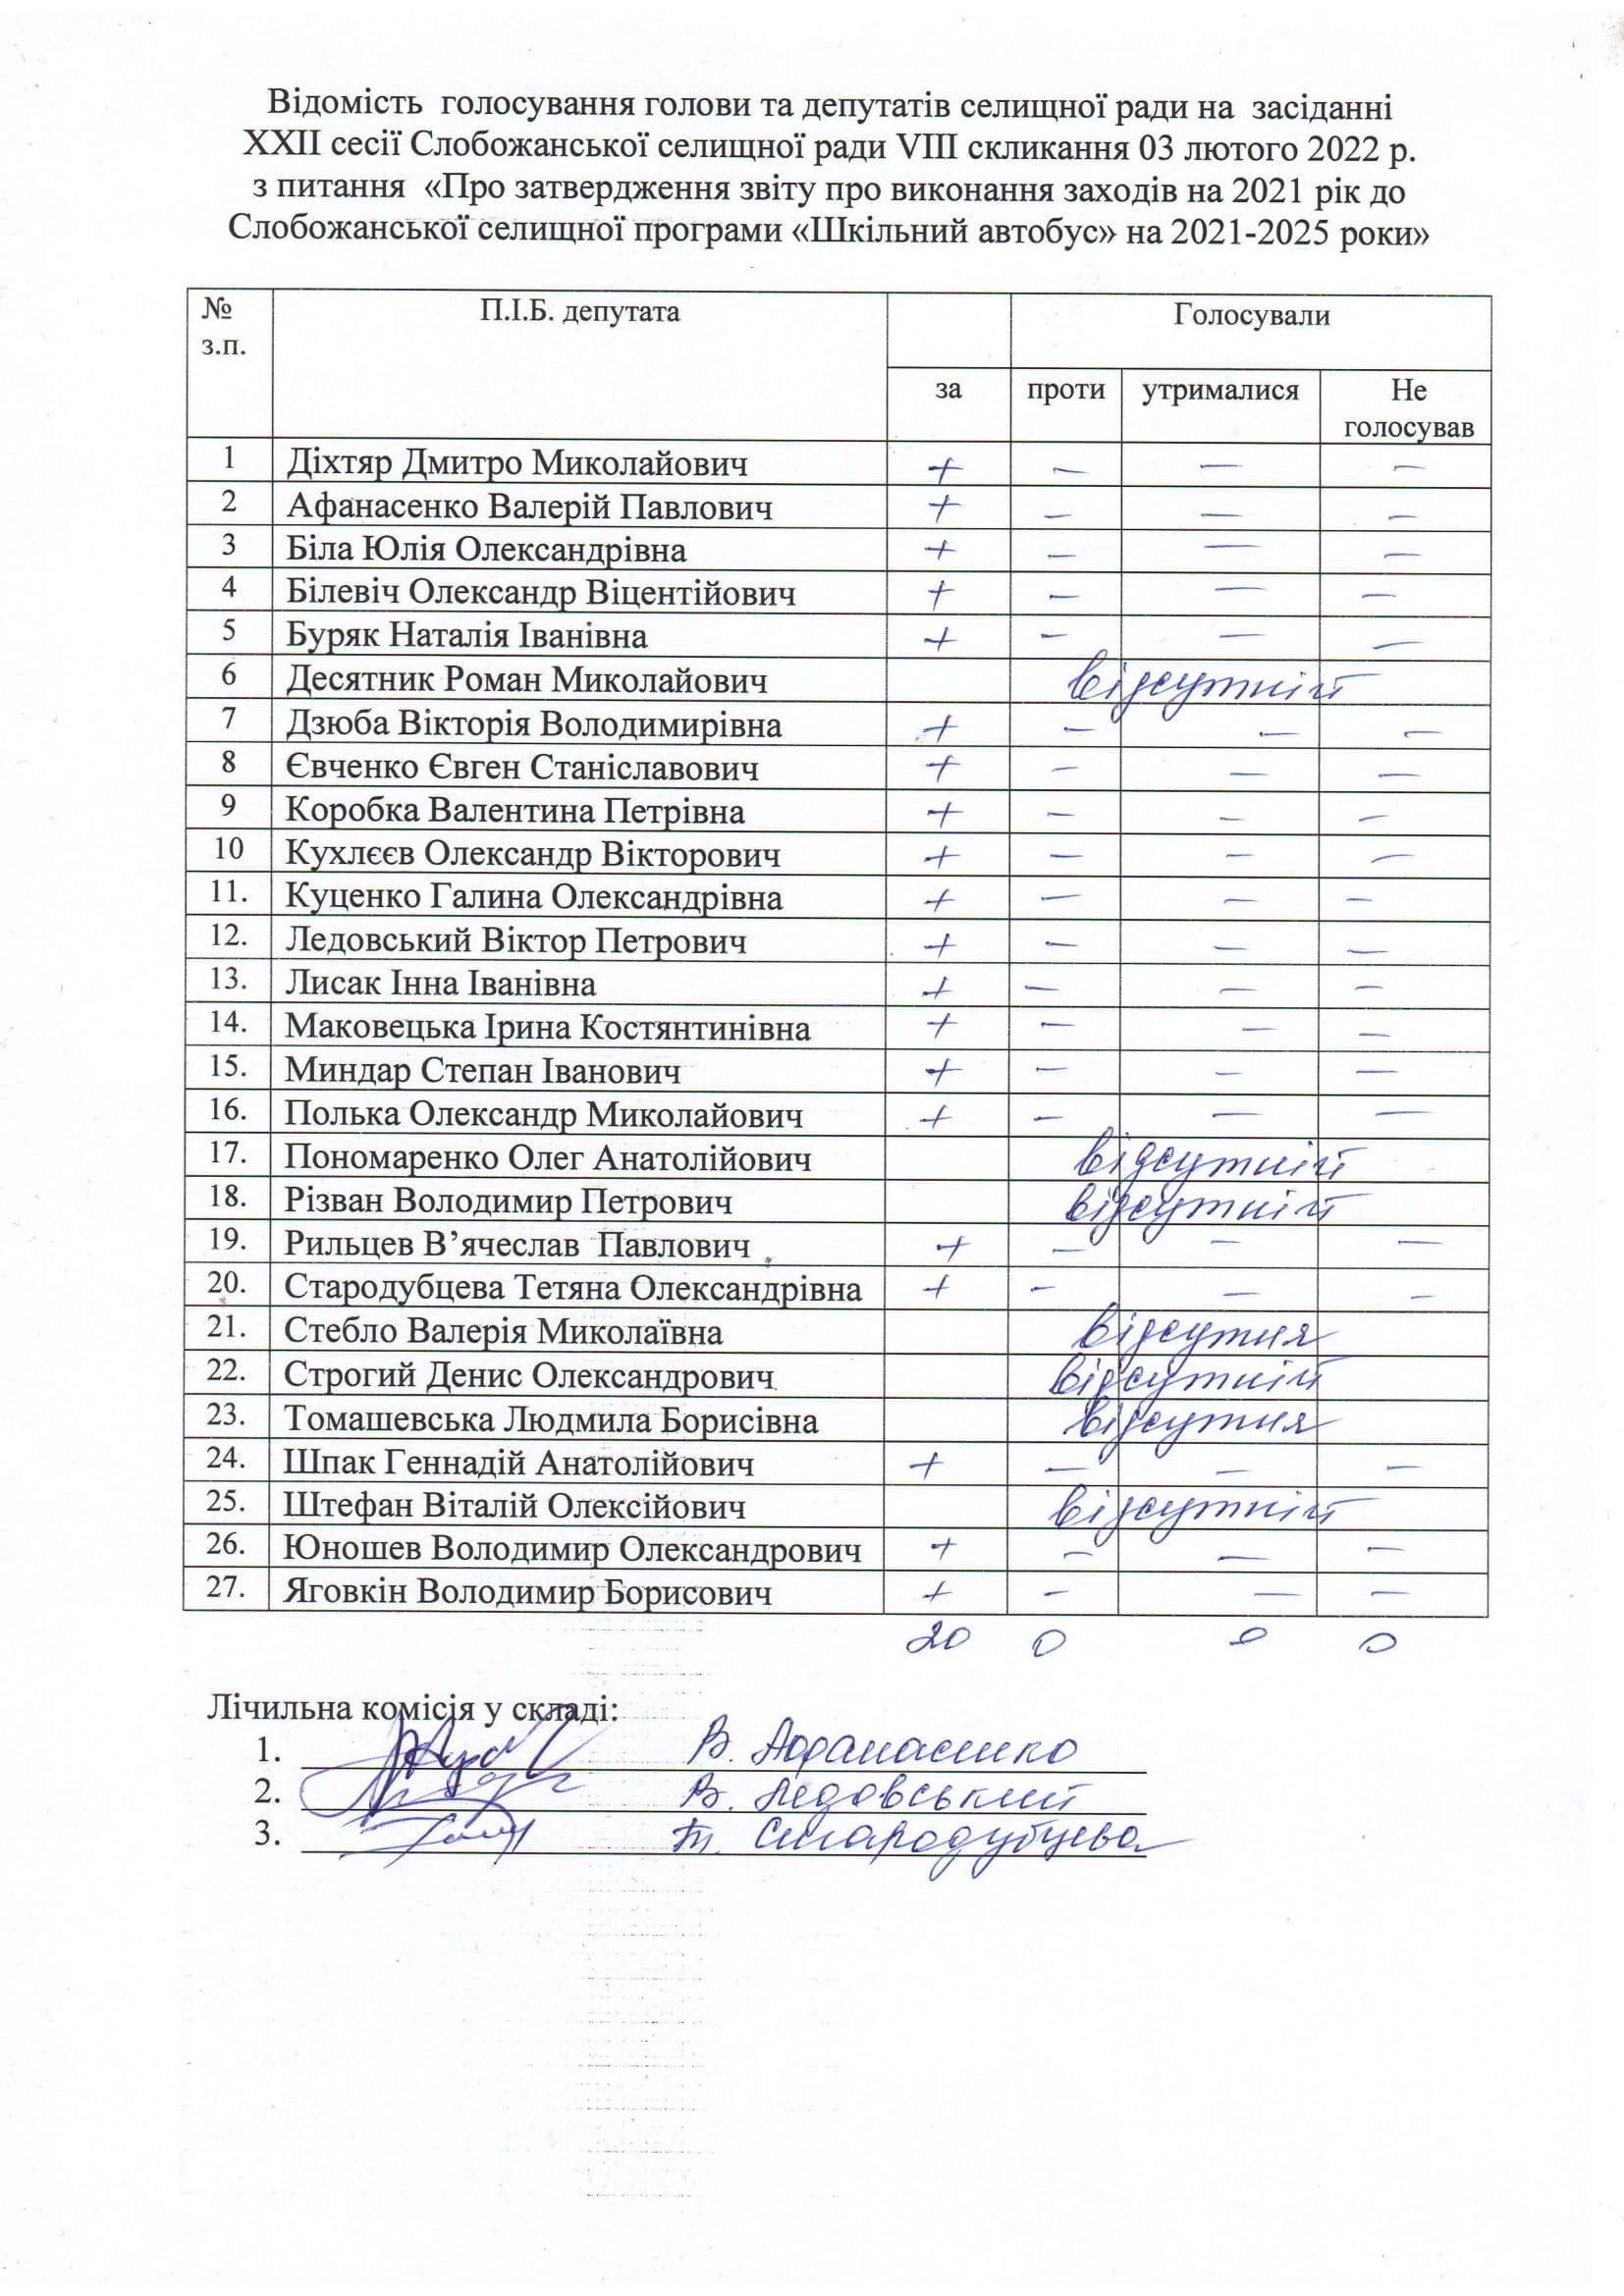 Відомість голосування голови та депутатів селищної ради на засіданні
XXII сесії Слобожанської селищної ради VIII скликання 03 лютого 2022 р.
з питання «Про затвердження звіту про виконання заходів на 2021 рік до
Слобожанської селищної програми «Шкільний автобус» на 2021-2025 роки»
№ з.п. П.І.Б. депутата Голосували
за проти утрималися Не голосував
1 Діхтяр Дмитро Миколайович + — — —
2 Афанасенко Валерій Павлович + — — —
3 Біла Юлія Олександрівна + — — —
4 Білевіч Олександр Віцентійович + — — —
5 Буряк Наталія Іванівна + — — —
6 Десятник Роман Миколайович відсутній
7 Дзюба Вікторія Володимирівна + — — —
8 Євченко Євген Станіславович + — — —
9 Коробка Валентина Петрівна + — — —
10 Кухлєєв Олександр Вікторович + — — —
11. Куценко Галина Олександрівна + — — —
12. Ледовський Віктор Петрович + — — —
13. Лисак Інна Іванівна + — — —
14. Маковецька Ірина Костянтинівна + — — —
15. Миндар Степан Іванович + — — —
16. Полька Олександр Миколайович + — — —
17. Пономаренко Олег Анатолійович відсутній
18. Різван Володимир Петрович відсутній
19. Рильцев В’ячеслав Павлович + — — —
20. Стародубцева Тетяна Олександрівна + — — —
21. Стебло Валерія Миколаївна відсутня
22. Строгий Денис Олександрович відсутній
23. Томашевська Людмила Борисівна відсутня
24. Шпак Геннадій Анатолійович + — — —
25. Штефан Віталій Олексійович відсутній
26. Юношев Володимир Олександрович + — — —
27. Яговкін Володимир Борисович + — — —
20 0 0 0
Лічильна комісія у складі:
1. В. Афанасенко
2. В. Ледовський
3. Т. Стародубцева